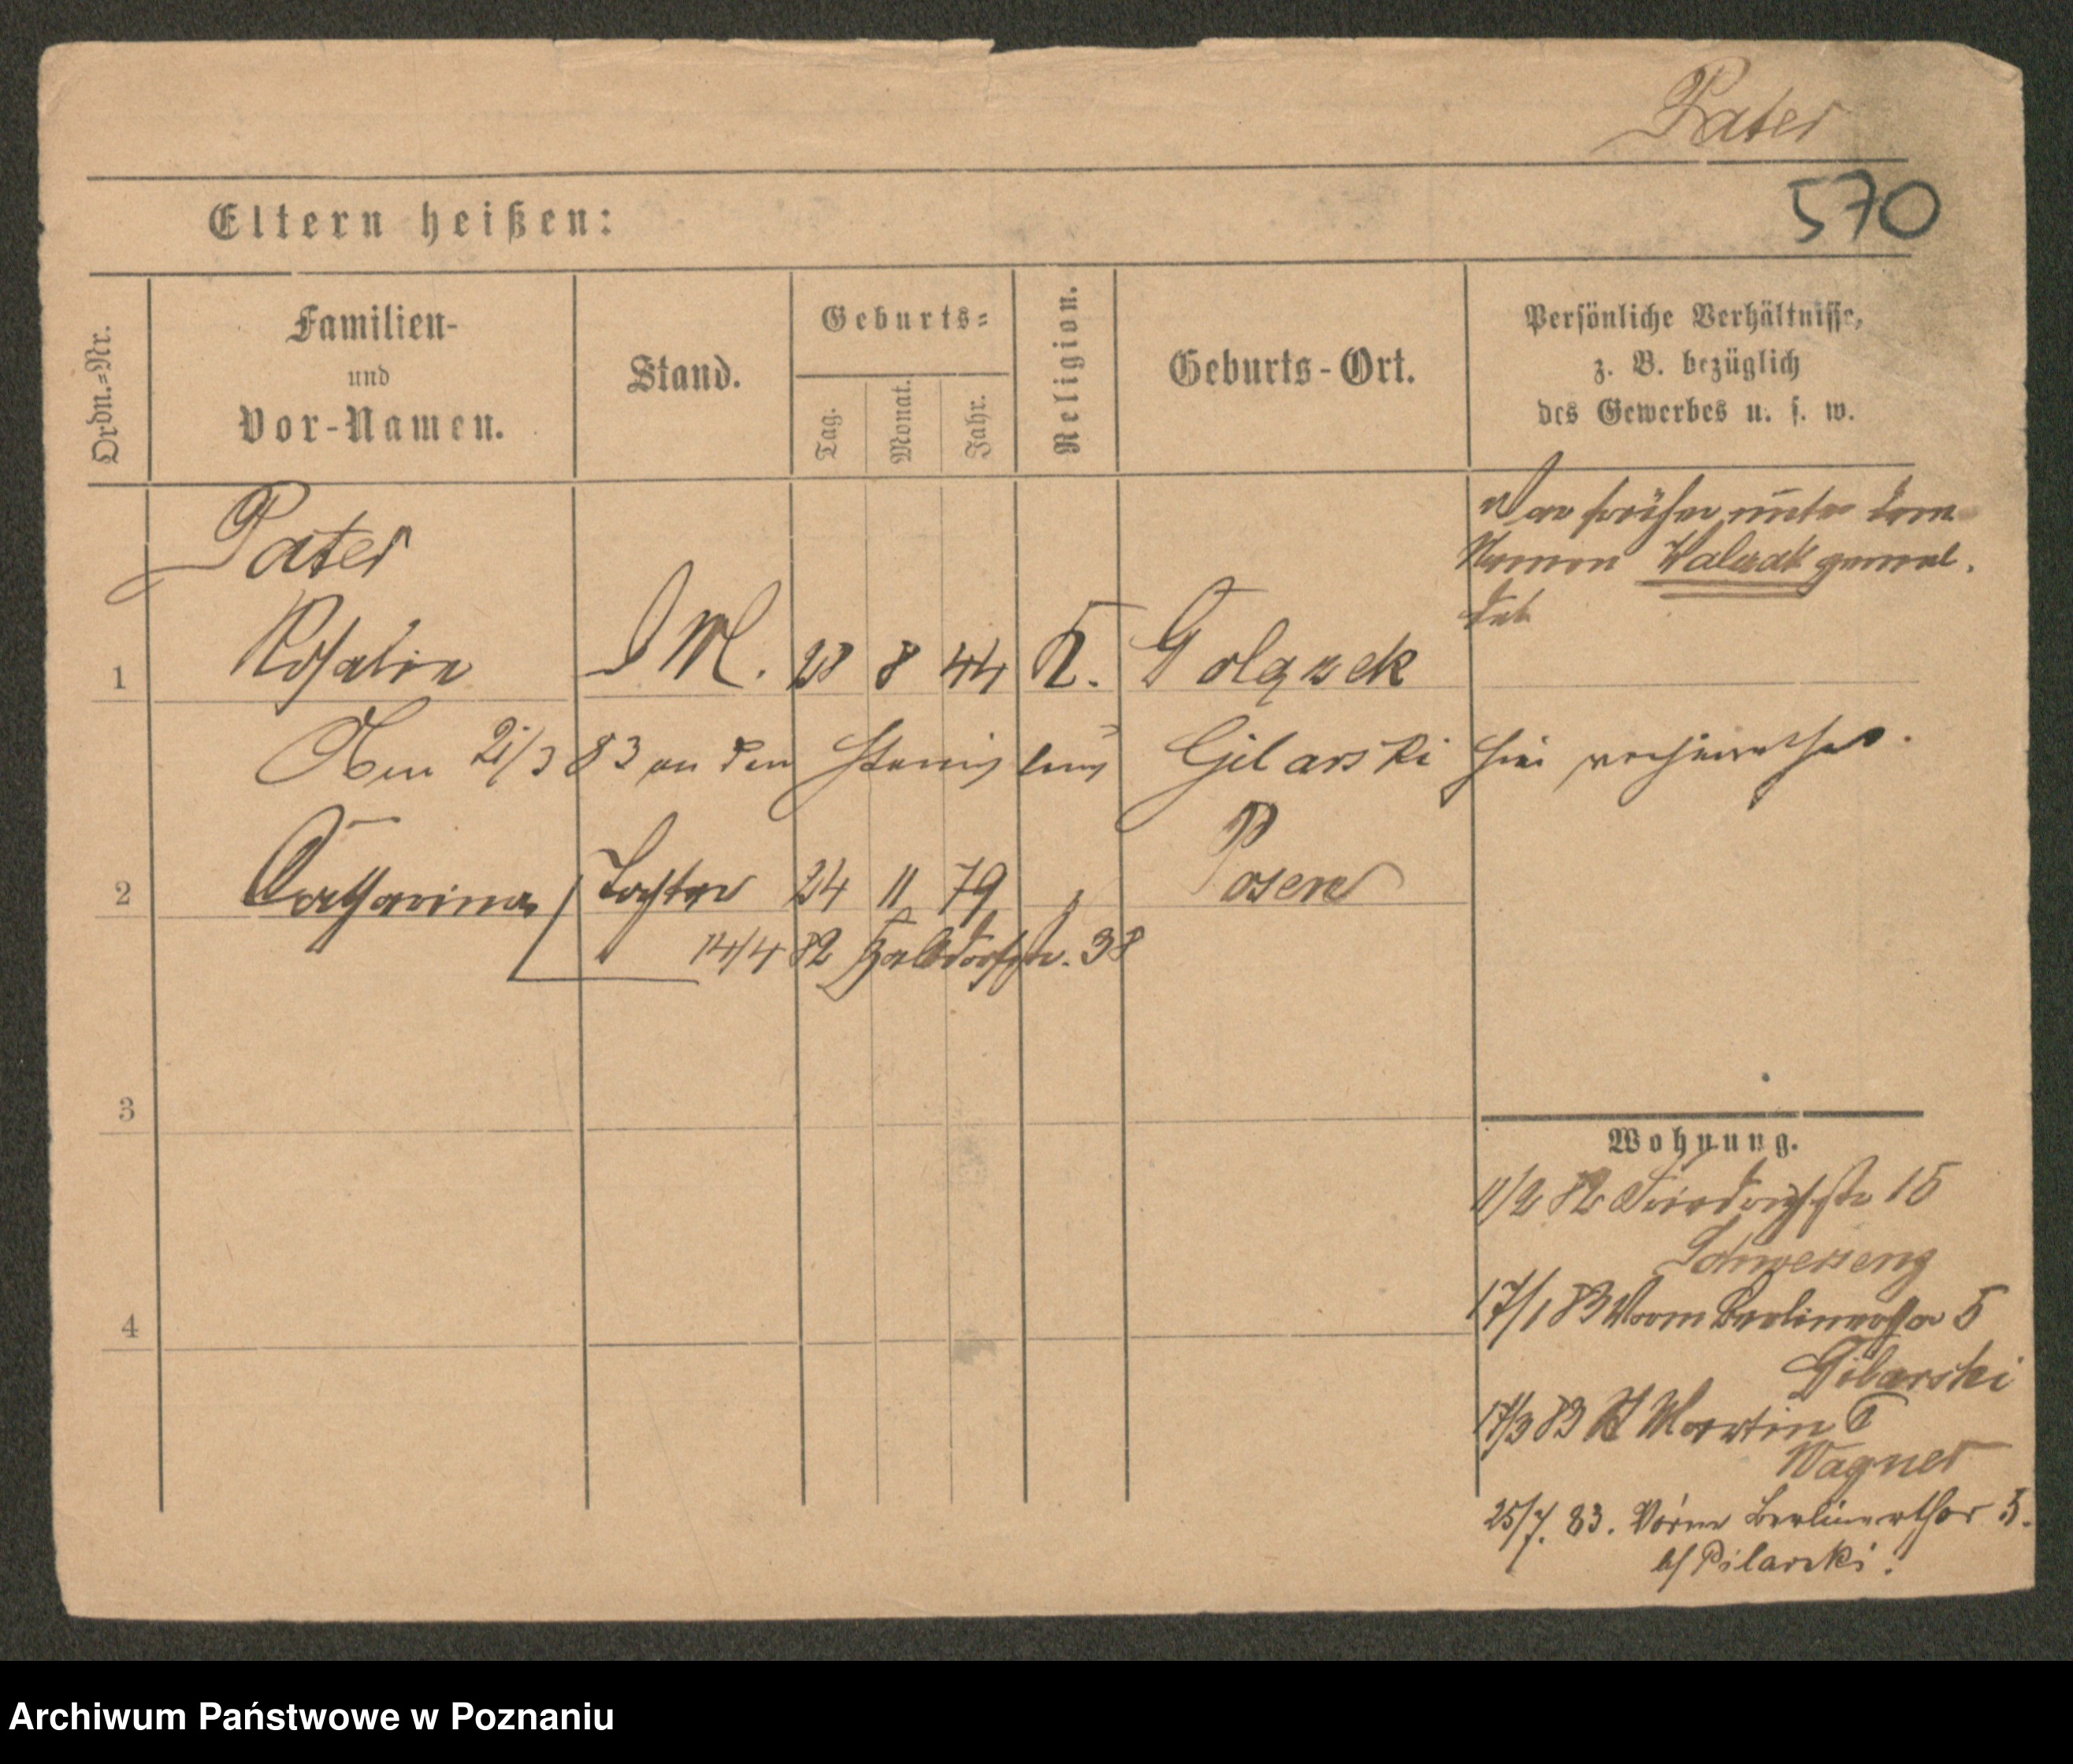 Pater
570
Eltern heißen:
Ordn.=Nr.
Familien-
und
Vor-Namen.
Stand.
Geburts=
Tag.
Monat.
Jahr.
Religion.
Geburts-Ort.
Persönliche Verhältnisse,
z. B. bezüglich
des Gewerbes u. s. w.
War früher unter dem
Namen Walczak gemel.
det
Pater
1 Rosalie D M. 28 8 44 K. Golązek
Am 21/3 83 an den Stanislaus Gilarski hier verheirathet.
2 Catharina Tochter 24 11 79 Posen
14/4 82 Halbdorfstr. 38
3
4
Wohnung.
11/2 82 Friedrichstr 15
Schwersenz
17/1 83 Vorm Berlinerthor 5
Gilarski
17/3 83 St Martin
Wagner
25/7. 83. Vorm Berlinerthor 5.
b/ Pilarski.
Archiwum Państwowe w Poznaniu